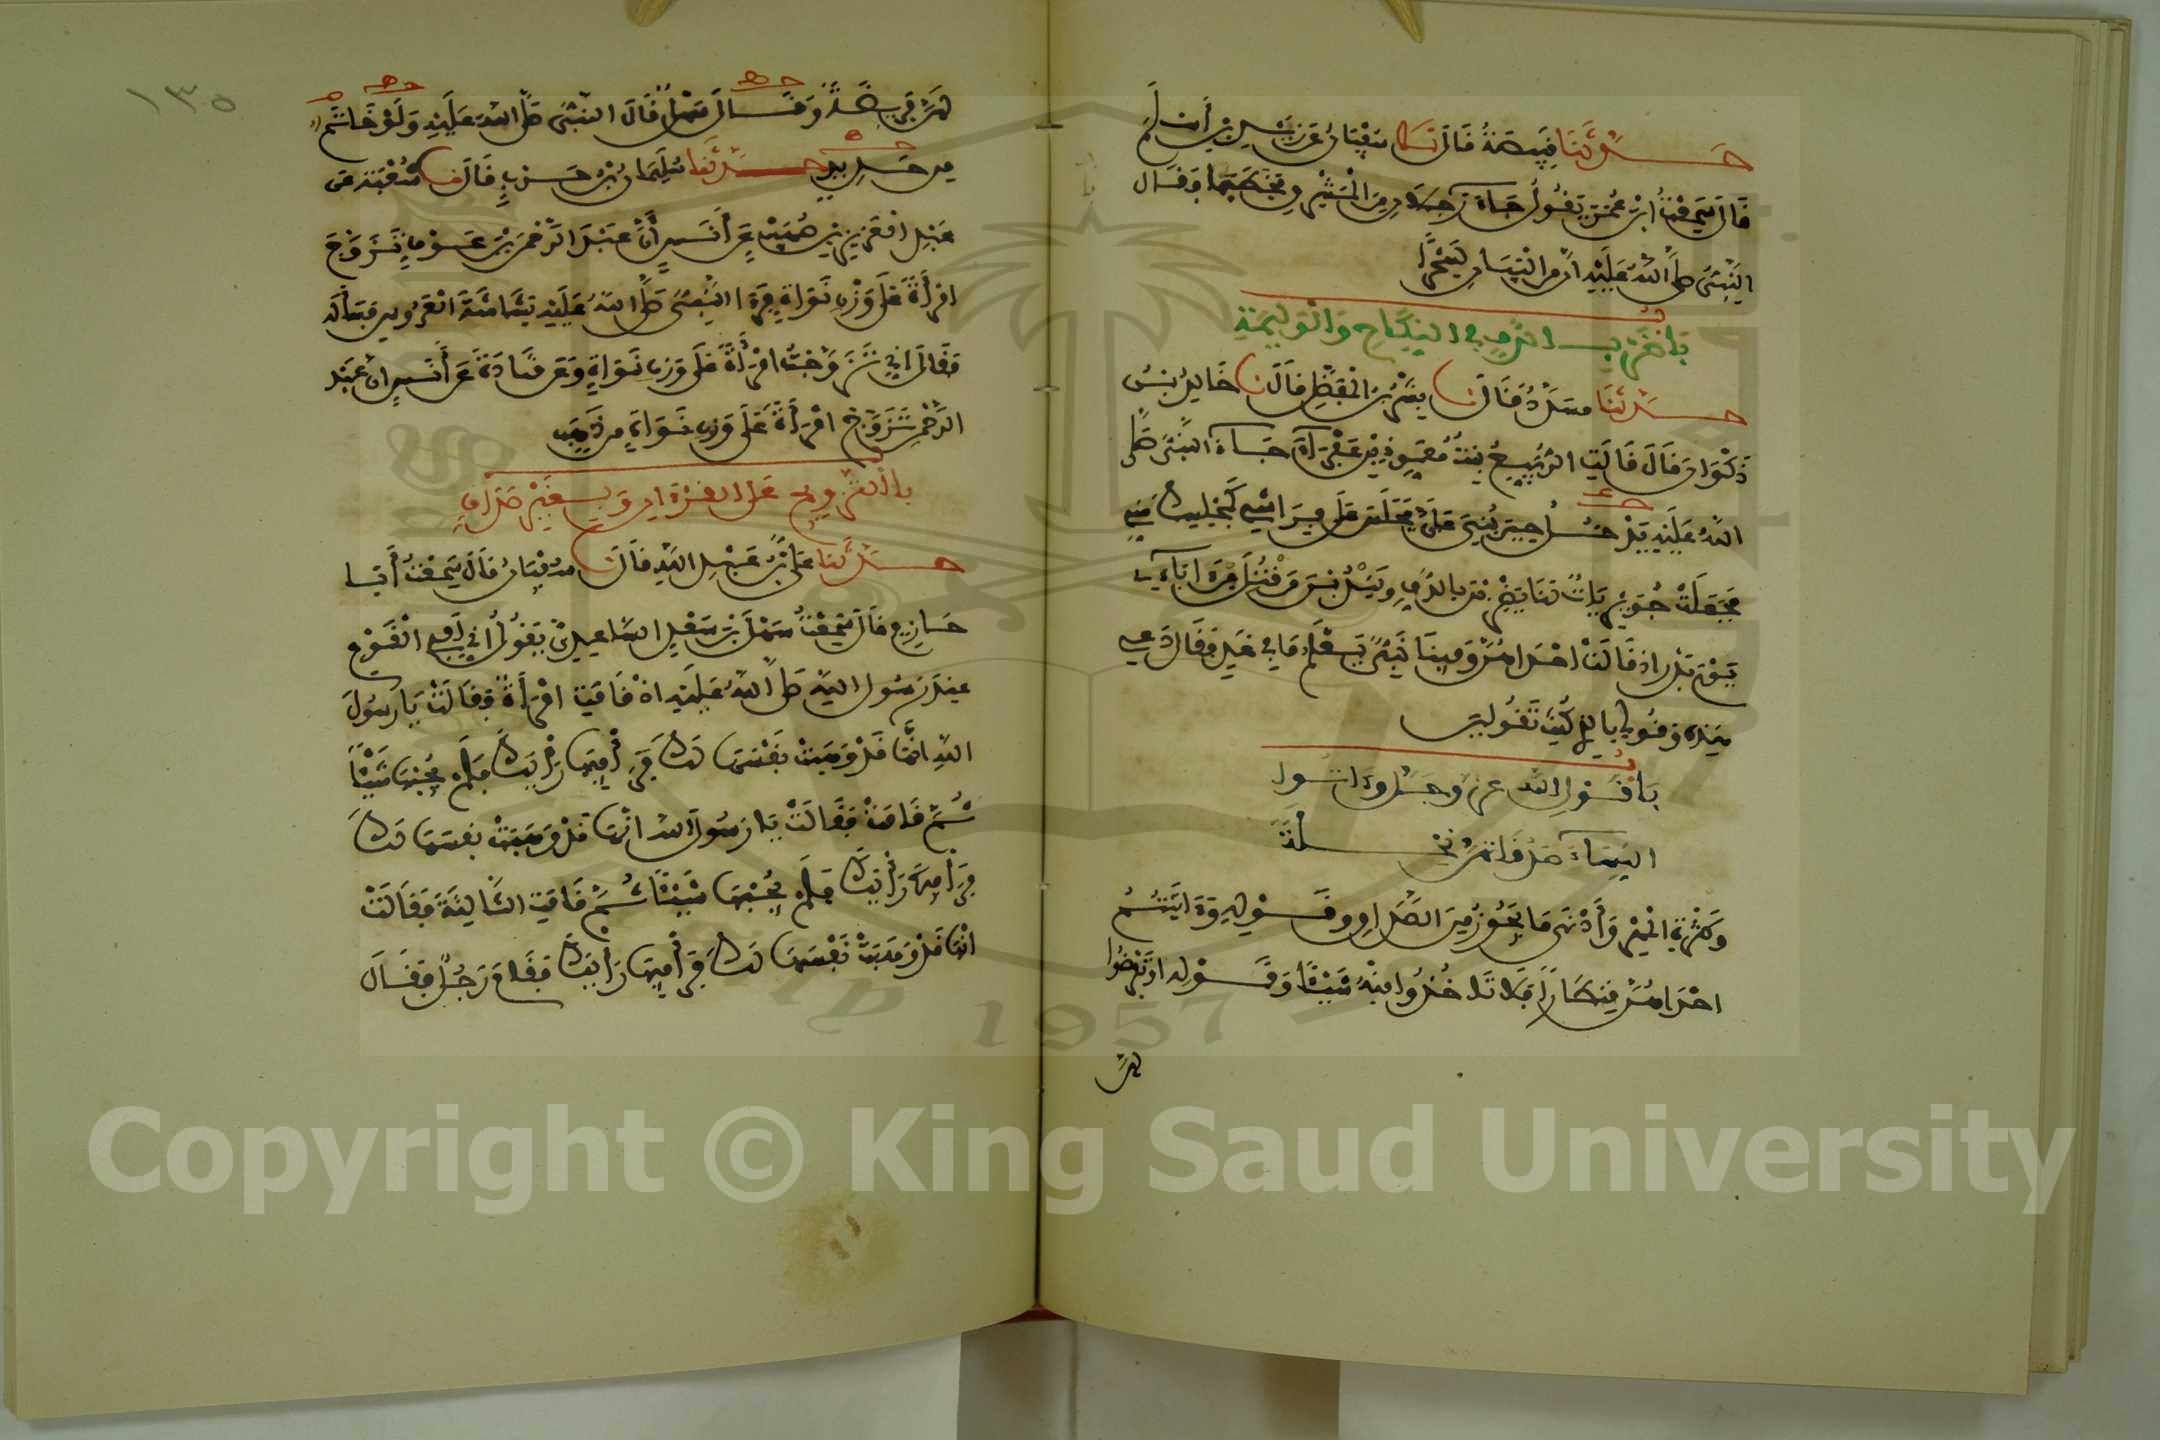 حدثنا قبيصة قال نا سفيان عن زيد بن أسلم
قال سمعت ابن عمر يقول جاء رجلان من المشرق فخطبا فقال
النبي صلى الله عليه ان من البيان لسحرا
باب ضرب الدف في النكاح والوليمة
حدثنا مسدد قال نا بشر بن المفضل قال نا خالد بن
ذكوان قال قالت الربيع بنت معوذ بن عفراء جاء النبي صلى
الله عليه يدخل حين بني علي فجلس على فراشي كمجلسك مني
فجعلت جويريات لنا يضربن بالدف ويندبن من قتل من اباءي
يوم بدر اذ قالت احداهن وفينا نبي يعلم ما في غد فقال دعي
هذه وقولي بالذي كنت تقولين
باب قول الله عز وجل واتوا
النساء صدقاتهن نحلة
وكثرة المهر وأدنى ما يجوز من الصداق وقوله واتيتم
احداهن قنطارا فلا تاخذوا منه شيئا وقوله او تفرضوا
لهن
١٣٥
لهن فريضة وقال سهل قال النبي صلى الله عليه ولو خاتم
من حديد حدثنا سليمان بن حرب قال نا شعبة عن
عبد العزيز بن صهيب عن أنس أن عبد الرحمن بن عوف تزوج
امرأة على وزن نواة فرءا النبي صلى الله عليه بشاشة العروس فسأله
فقال اني تزوجت امرأة على وزن نواة وعن قتادة عن أنس ان عبد
الرحمن تزوج امرأة على وزن نواة من ذهب
باب التزويج على القرءان وبغير صداق
حدثنا علي بن عبد الله قال نا سفيان قال سمعت أبا
حازم قال سمعت سهل بن سعد الساعدي يقول اني لفي القوم
عند رسول الله صلى الله عليه اذ قامت امرأة فقالت يا رسول
الله انها قد وهبت نفسها لك فر فيها رأيك فلم يجبها شيئا
ثم قامت فقالت يا رسول الله انها قد وهبت نفسها لك
فر فيها رأيك فلم يجبها شيئا ثم قامت الثالثة فقالت
انها قد وهبت نفسها لك فر فيها رأيك فقام رجل فقال
Copyright © King Saud University
1957